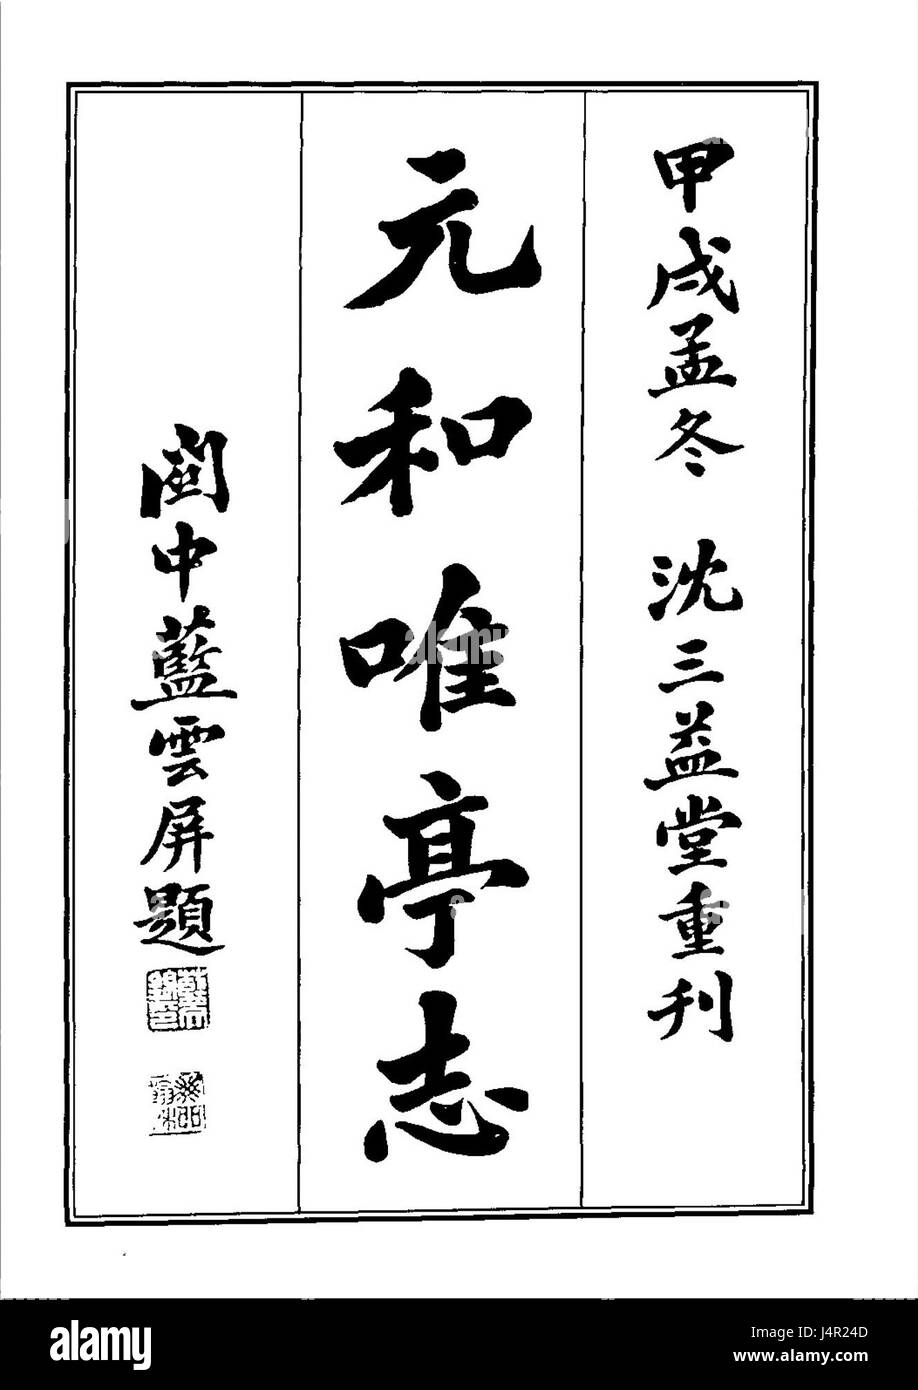 甲戌孟冬 沈三益堂重刊
元和唯亭志
閩中藍雲屏題
alamy
Image ID: J4R24D
www.alamy.com